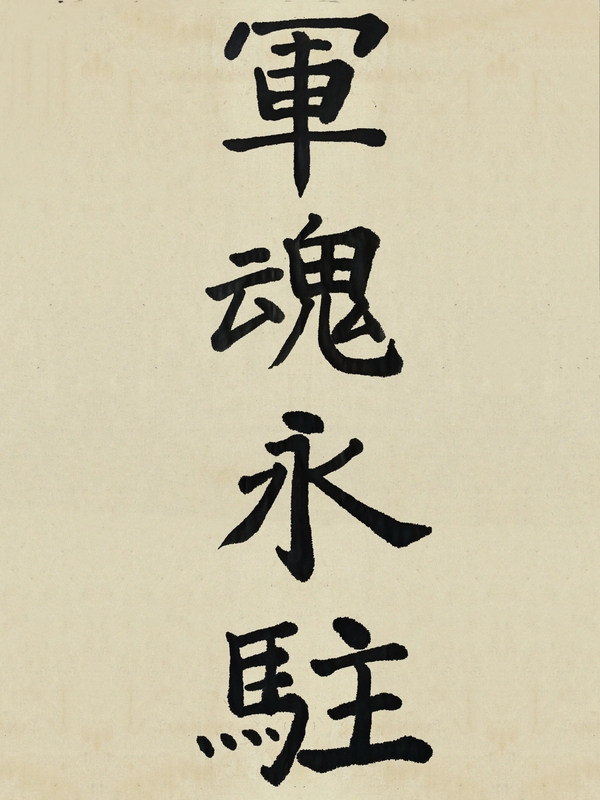 軍魂永駐